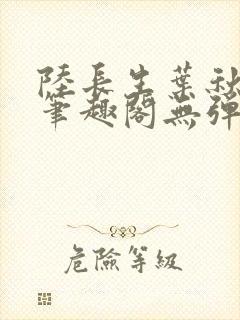 陸長生葉秋
筆趣閣無彈
危險等級